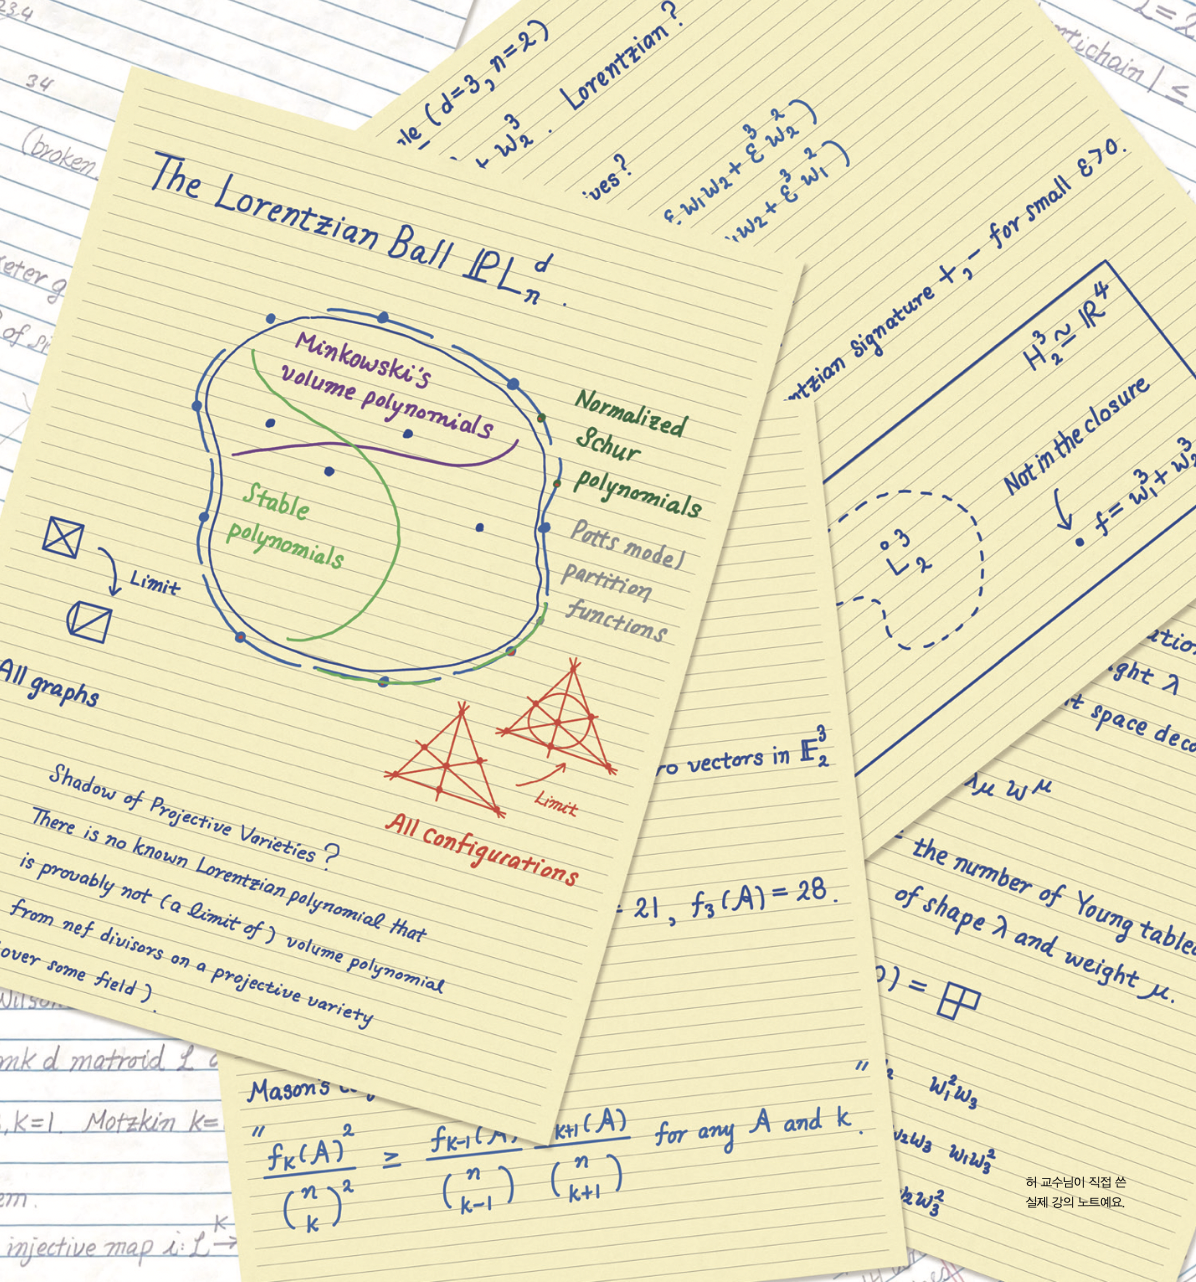 The Lorentzian Ball ℙL_n^d .
Minkowski's
volume polynomials
Stable
polynomials
Normalized
Schur
polynomials
Potts model
partition
functions
Limit
All graphs
Limit
All configurations
Shadow of Projective Varieties ?
There is no known Lorentzian polynomial that
is provably not (a limit of) volume polynomial
from nef divisors on a projective variety
over some field).
(d=3, n=2)
+ w_2^3 . Lorentzian ?
w_1w_2 + ε^3 w_2^2)
w_2 + ε^3 w_1^2)
signature +,- for small ε>0.
H_2^3 ≃ ℝ^4
Not in the closure
f = w_1^3 + w_2^3
L°_2^3
vectors in 𝔽_2^3
= 21, f_3(A) = 28.
Mason's
" f_k(A)^2 / (n k)^2 ≥ f_{k-1}(A) / (n k-1) f_{k+1}(A) / (n k+1) for any A and k . "
λ
space
λμ w^μ
= the number of Young
of shape λ and weight μ.
) =
w_1^2w_3
w_2w_3 w_1w_3^2
w_2w_3^2
23.4
34
(broken
of
d matroid ℒ
k=1. Motzkin k=
injective map i: ℒ →
antichain | ≤
허 교수님이 직접 쓴
실제 강의 노트예요.